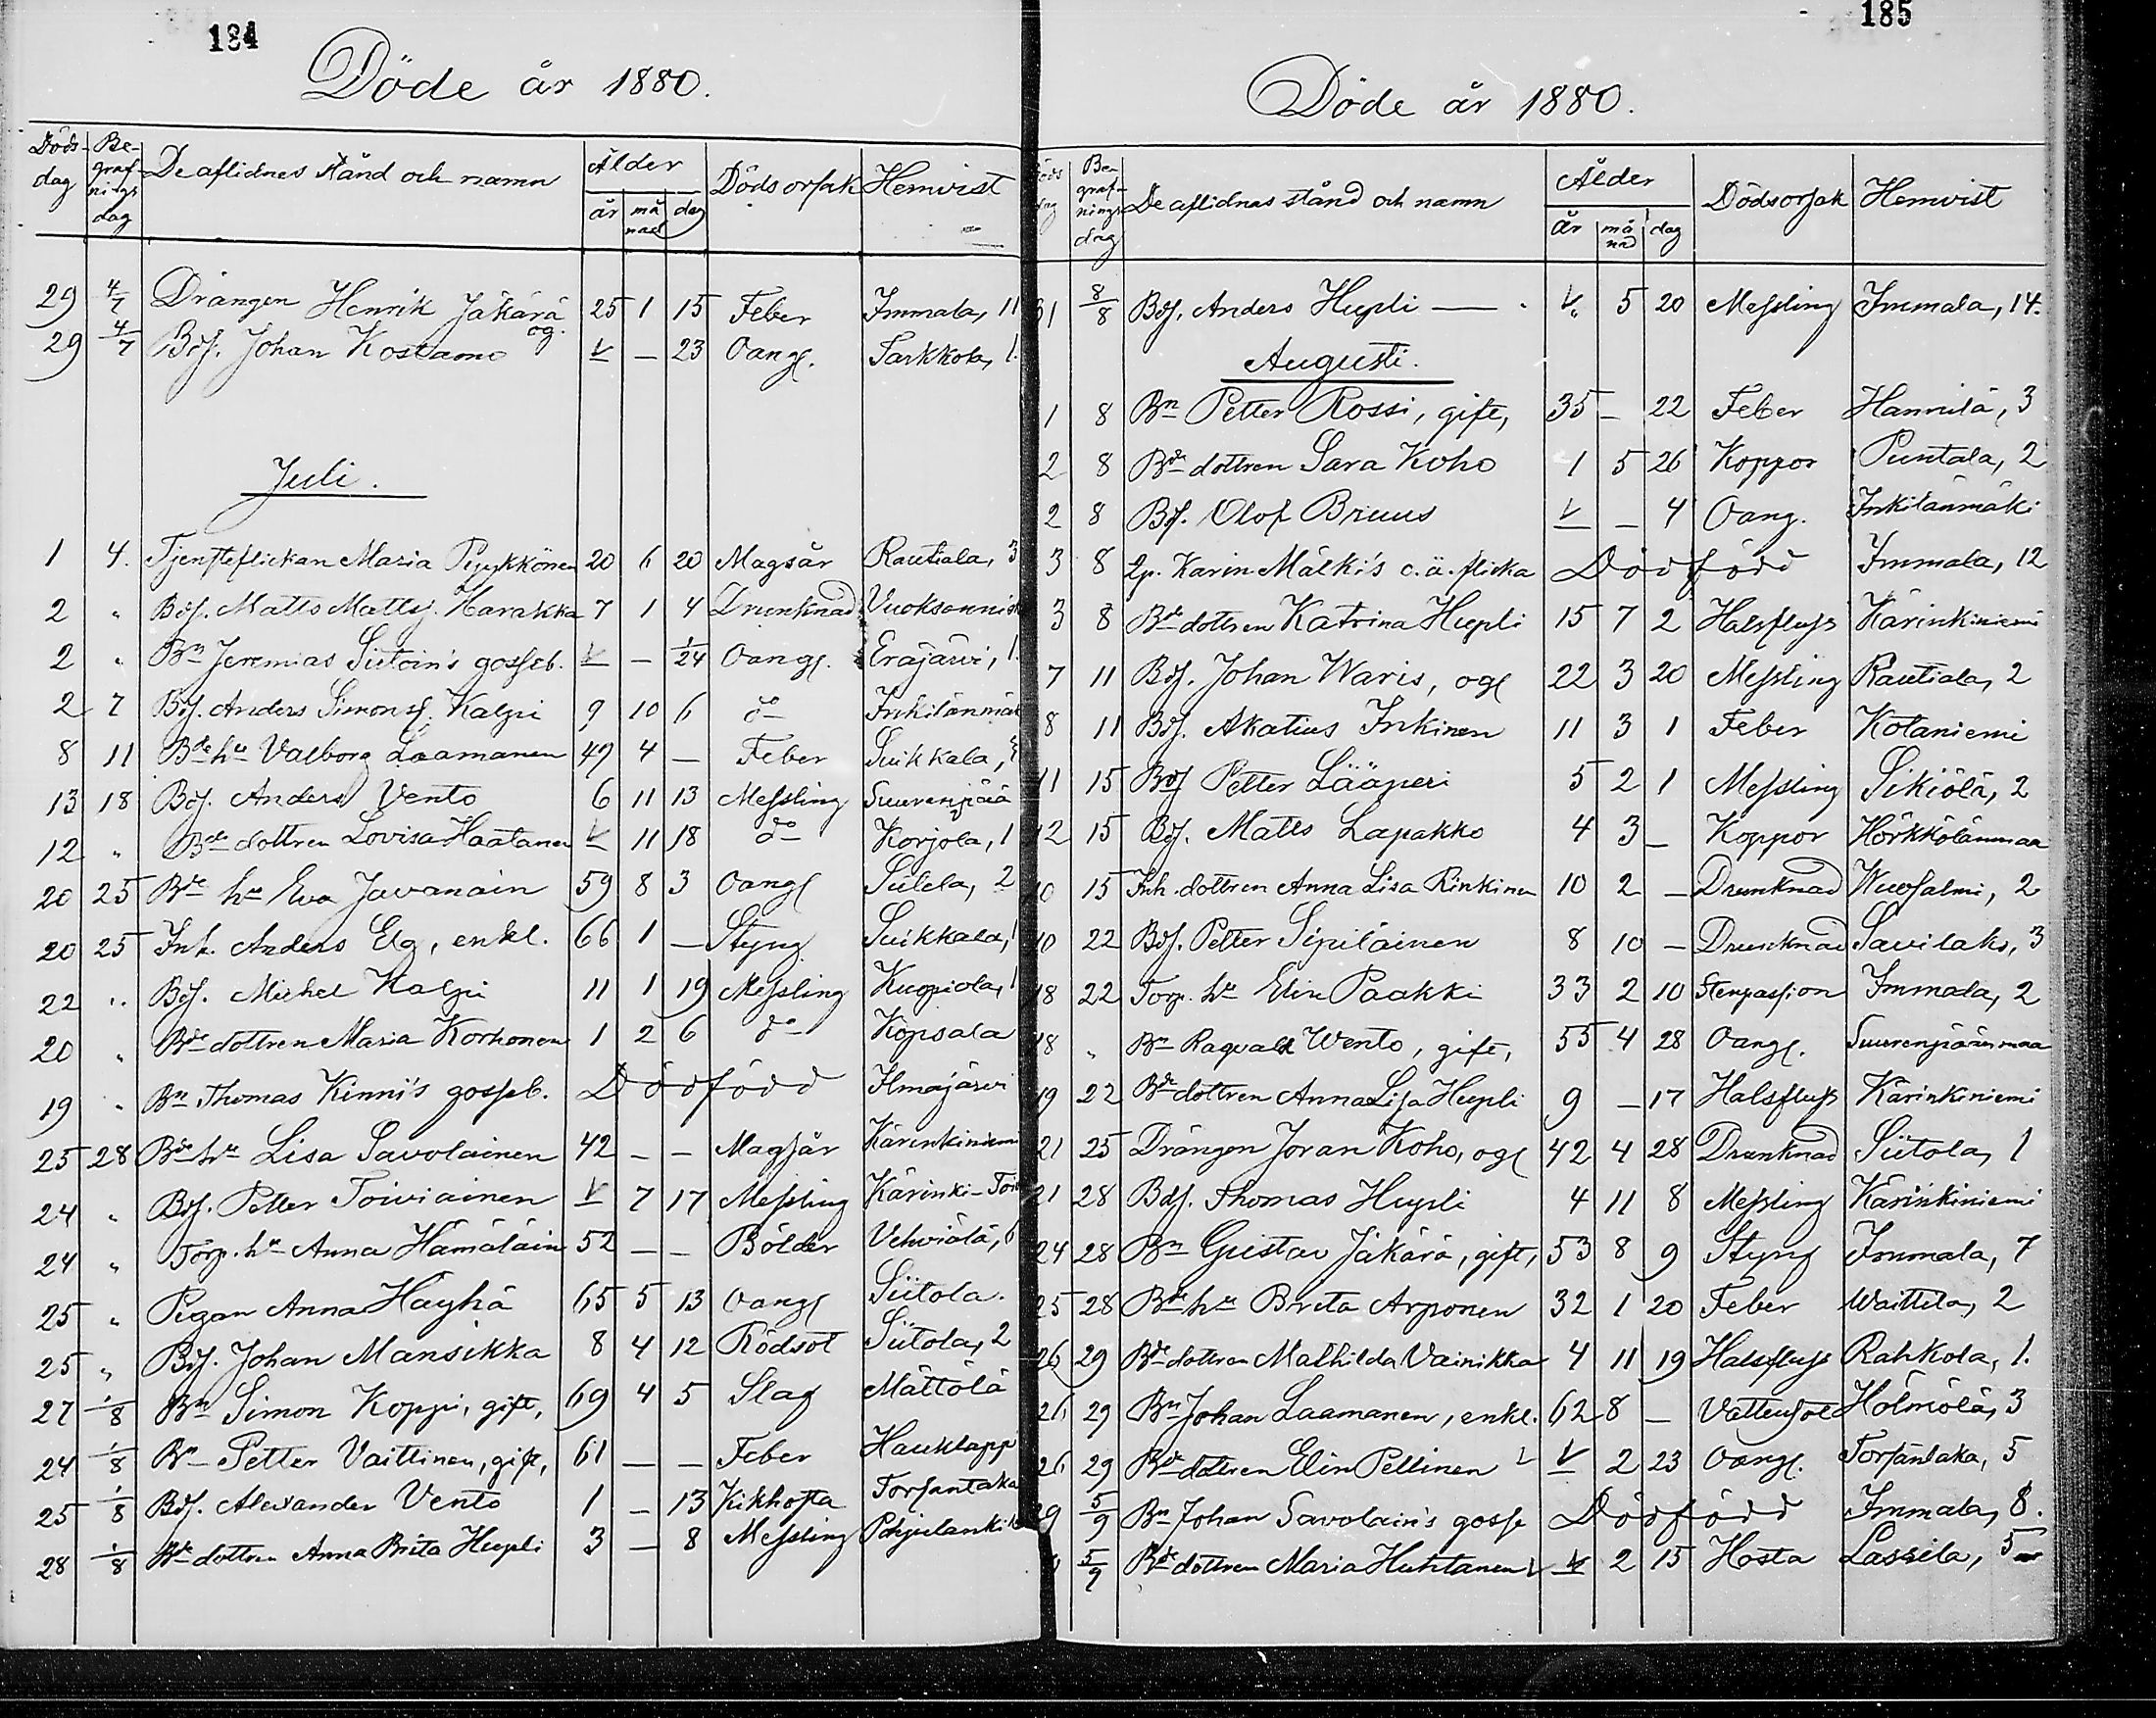 184
Döde år 1880.
Döds-dag Be-grafnings dag De aflidnes stånd och namn Ålder år månad dag Dödsorsak Hemvist
29 4/7 Drängen Henrik Jäkärä og. 25 1 15 Feber Immala, 11
29 4/7 Bds. Johan Kostamo v — 23 Oang. Sarkkola, 1.
Juli.
1 4. Tjensteflickan Maria Pynkkönen 20 6 20 Magsår Rautiala, 3
2 " Bds. Matts Mattss. Harakka 7 1 4 Drunknad Vuoksennisk
2 " Bn Jeremias Siitoin's gosseb. v — 1/24 Oang. Eräjärvi, 1.
2 7 Bds. Anders Simonss. Kalpi 9 10 6 do Inkilänmäk
8 11 Bde hu Valborg Laamanen 47 4 — Feber Suikkala,
13 18 Bds. Anders Vento 6 11 13 Messling Suurenpää
12 " Bde dottren Lovisa Haatanen v 11 18 do Korjola, 1
20 25 Bde hu Eva Javanain 59 8 3 Oang Siilela, 2
20 25 Inh. Anders Elg, enkl. 66 1 — Styng Suikkala, 1
22 " Bds. Michel Kalpi 11 1 19 Messling Kuopiola, 1
20 " Bde dottren Maria Korhonen 1 2 6 do Kopsala
19 " Bn Thomas Kinni's gosseb. Dödfödd Ilmajärvi
25 28 Bde hu Lisa Savolainen 42 — — Magsår Kärinkiniemi
24 " Bds. Petter Toiviainen v 7 17 Messling Kärinki-Toiv
24 " Torp. hu Anna Hämäläin 52 — — Bölder Vehviälä, 6
25 " Pigan Anna Häyhä 65 5 13 Oang Siitola.
25 " Bds. Johan Mansikka 8 4 12 Rödsot Siitola, 2
27 1/8 Bn Simon Koppi, gift, 69 4 5 Slag Mättölä
24 1/8 Bn Petter Vaittinen, gift, 61 — — Feber Hauklapp
25 1/8 Bds. Alexander Vento 1 — 13 Kikhosta Torsantaka
28 1/8 Bde dottren Anna Brita Hupli 3 — 8 Messling Pohjalankil
185
Döde år 1880.
Döds dag Be-grafnings dag De aflidnes stånd och namn Ålder år månad dag Dödsorsak Hemvist
31 8/8 Bds. Anders Hupli — v 5 20 Messling Immala, 14.
Augusti.
1 8 Bn Petter Rossi, gift, 35 — 22 Feber Hannilä, 3
2 8 Bde dottren Sara Koho 1 5 26 Koppor Puntala, 2
2 8 Bds. Olof Bruus v — 4 Oang. Inkilänmäki
3 8 Lp. Karin Mälki's o.ä. flicka Dödfödd Immala, 12
3 8 Bde dottren Katrina Hupli 15 7 2 Halsfluss Kärinkiniemi
7 11 Bds. Johan Waris, og 22 3 20 Messling Rautiala, 2
8 11 Bds. Akatius Inkinen 11 3 1 Feber Kotaniemi
11 15 Bds Petter Lääperi 5 2 1 Messling Sikiölä, 2
12 15 Bds. Matts Lapakko 4 3 — Koppor Hörkkölänmaa
10 15 Inh. dottren Anna Lisa Rinkinen 10 2 — Drunknad Kuosalmi, 2
10 22 Bds. Petter Sipiläinen 8 10 — Drunknad Savilaks, 3
18 22 Torp. hu Elin Paakki 33 2 10 Stenpassion Immala, 2
18 " Bn Ragvald Wento, gift, 55 4 28 Oang. Suurenpäänmaa
19 22 Bde dottren Anna Lisa Hupli 9 — 17 Halsfluss Kärinkiniemi
21 25 Drängen Joran Koho, og 42 4 28 Drunknad Siitola, 1
21 28 Bds. Thomas Hupli 4 11 8 Messling Kärinkiniemi
24 28 Bn Gustav Jäkärä, gift, 53 8 9 Styng Immala, 7
25 28 Bde hu Brita Arponen 32 1 20 Feber Waittila, 2
26 29 Bde dottren Mathilda Vainikka 4 11 19 Halsfluss Rahkola, 1.
26 29 Bn Johan Laamanen, enkl. 62 8 — Vattusot Hölmölä, 3
26 29 Bde dottren Elin Pellinen v 2 23 Oang. Torsantaka, 5
29 5/9 Bn Johan Savolain's gosse Dödfödd Immala, 8.
5/9 Bde dottren Maria Huhtanen v 2 15 Hosta Lassila, 5